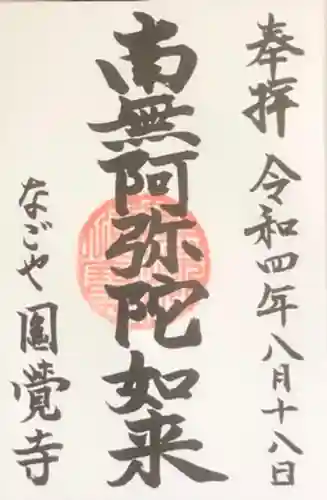 奉拝 令和四年八月十八日
南無阿弥陀如来
なごや 圓覚寺